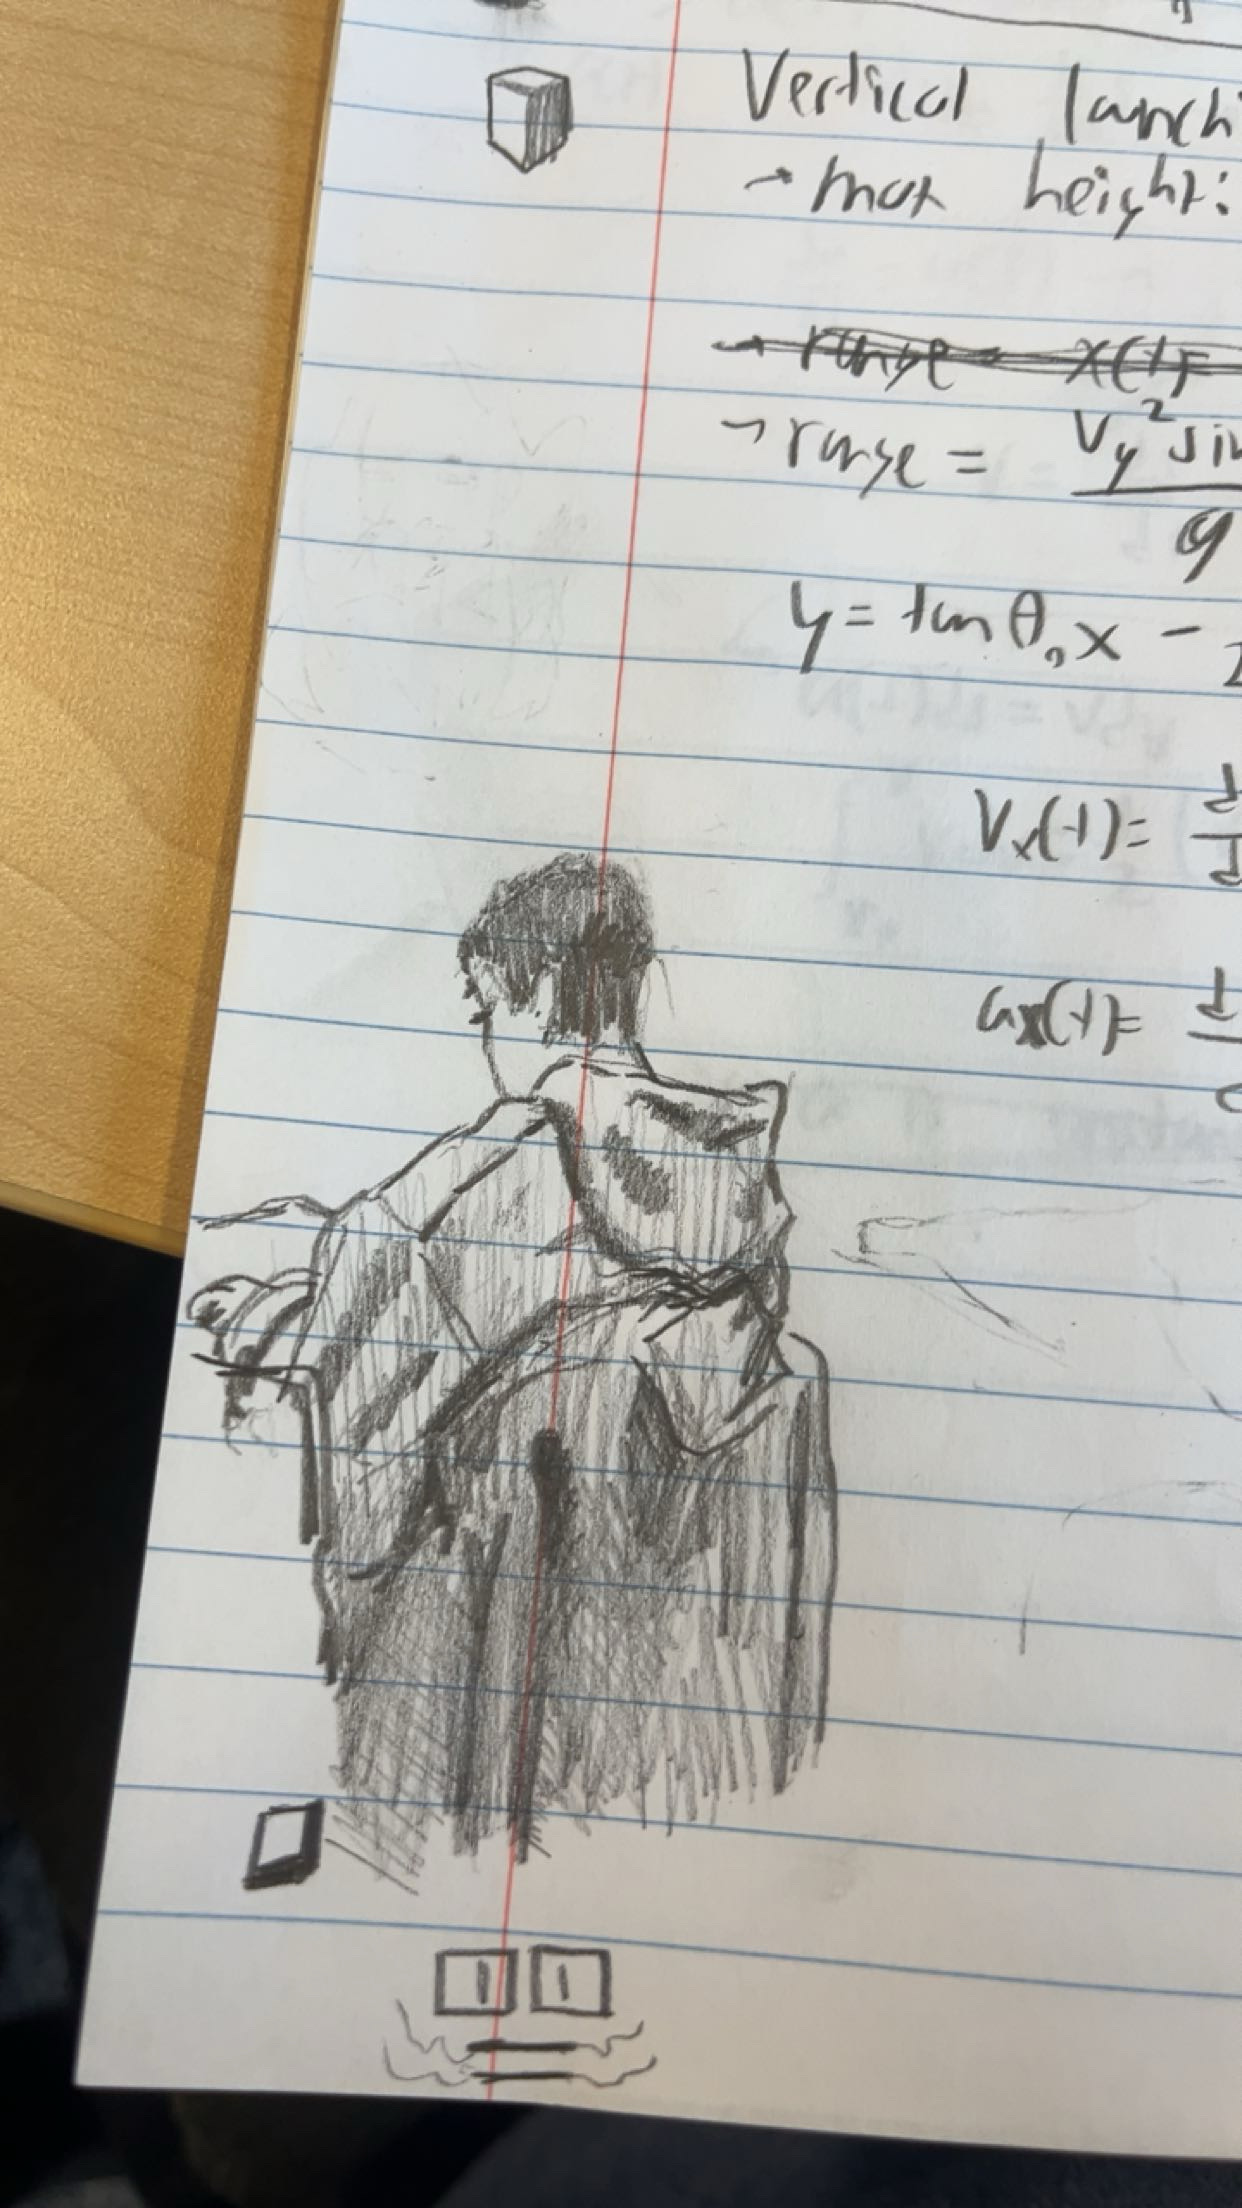 Vertical launch
→ max height:
→ range = x(t)=
→ range = Vy² sin
g
y = tan θ₀ x -
Vx(t) = d
ax(t) = d